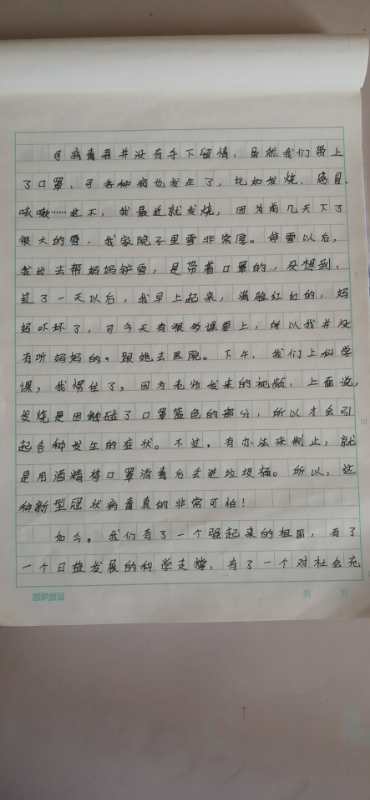 病毒并没有手下留情，虽然我们带上
了口罩，可各种病也发生了，比如发烧、感冒、
咳嗽……这不，我最近就发烧，因为前几天下了
很大的雪，我家院子里雪非常厚。停雪以后，
我出去帮妈妈铲雪，是带着口罩的，没想到，
过了一天以后，我早上起来，满脸红红的，妈
妈吓坏了，可今天有很多课要上，所以我并没
有听妈妈的，跟她去医院。下午，我们上科学
课，我愣住了，因为老师发来的视频，上面说，
发烧是因触碰了口罩蓝色的部分，所以才会引
起各种发生的症状。不过，有办法来制止，就
是用酒精将口罩消毒后去进垃圾桶。所以，这
种新型冠状病毒真的非常可怕！
如今。我们有了一个强起来的祖国，有了
一个日益发展的科学支撑，有了一个对社会充